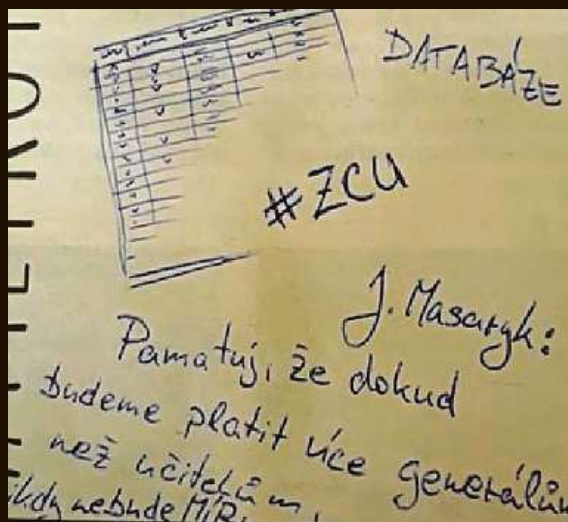 DATABÁZE
#ZCU
J. Masaryk:
Pamatuj, že dokud
budeme platit více generálům
než učitelům,
nikdy nebude MÍR.